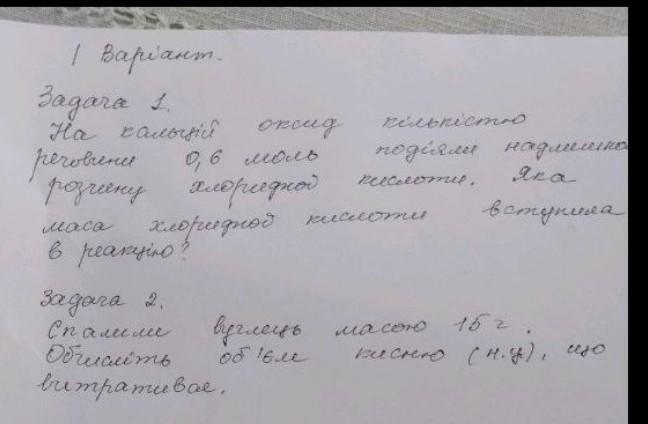 І Варіант.
Задача 1.
На кальцій оксид кількістю
речовини 0,6 моль подіяли надлишко
розчину хлоридної кислоти. Яка
маса хлоридної кислоти вступила
в реакцію?
Задача 2.
Спалили вуглець масою 15 г.
Обчисліть об'єм кисню (н.у), що
витративае.